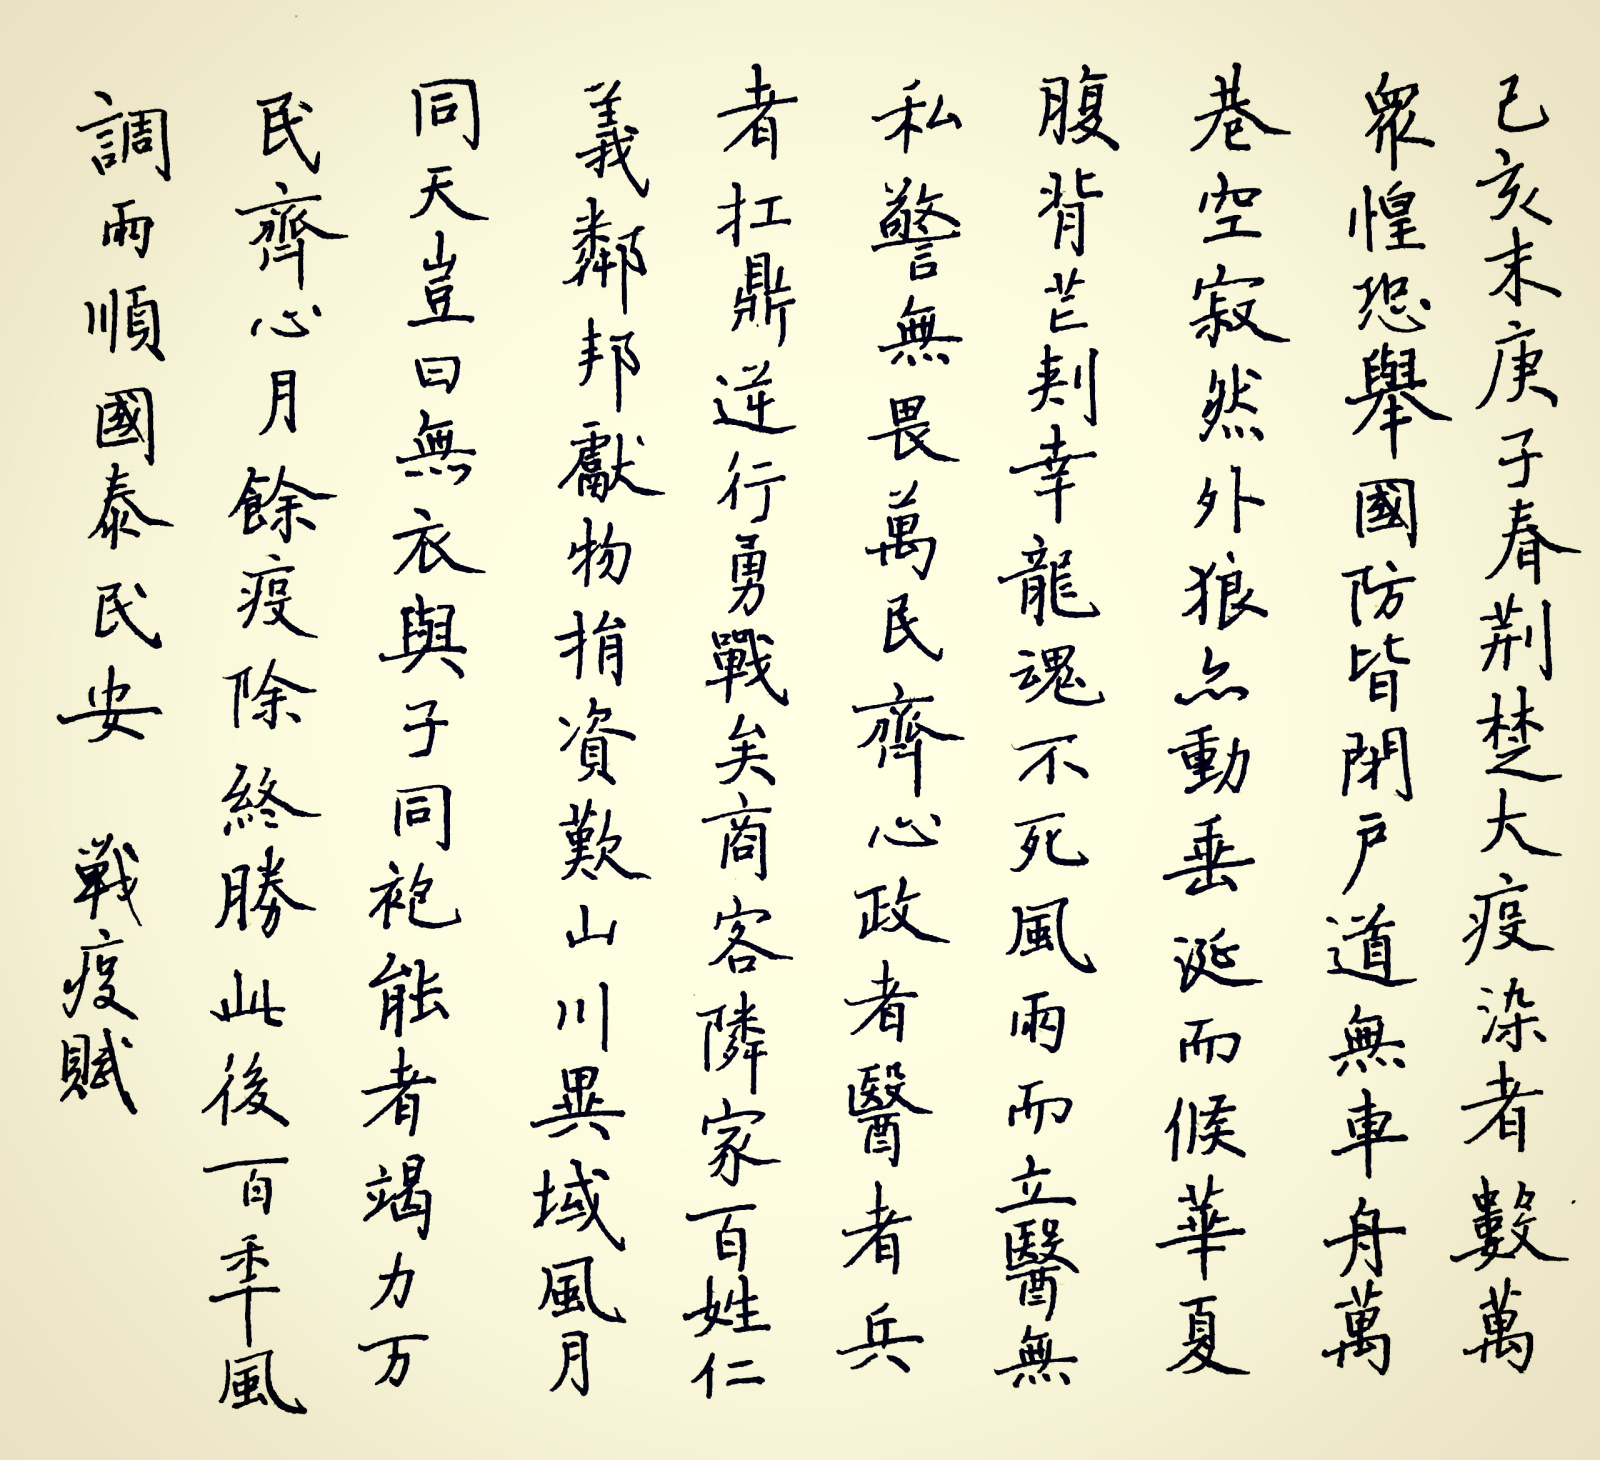 己亥末庚子春荆楚大疫染者數萬
眾惶恐舉國防皆閉戶道無車舟萬
巷空寂然外狼亦動垂涎而候華夏
腹背芒刺幸龍魂不死風雨而立醫無
私警無畏萬民齊心政者醫者兵
者扛鼎逆行勇戰矣商客隣家百姓仁
義鄰邦獻物捐資歎山川異域風月
同天豈曰無衣與子同袍能者竭力万
民齊心月餘疫除終勝此後百年風
調雨順國泰民安 戰疫賦